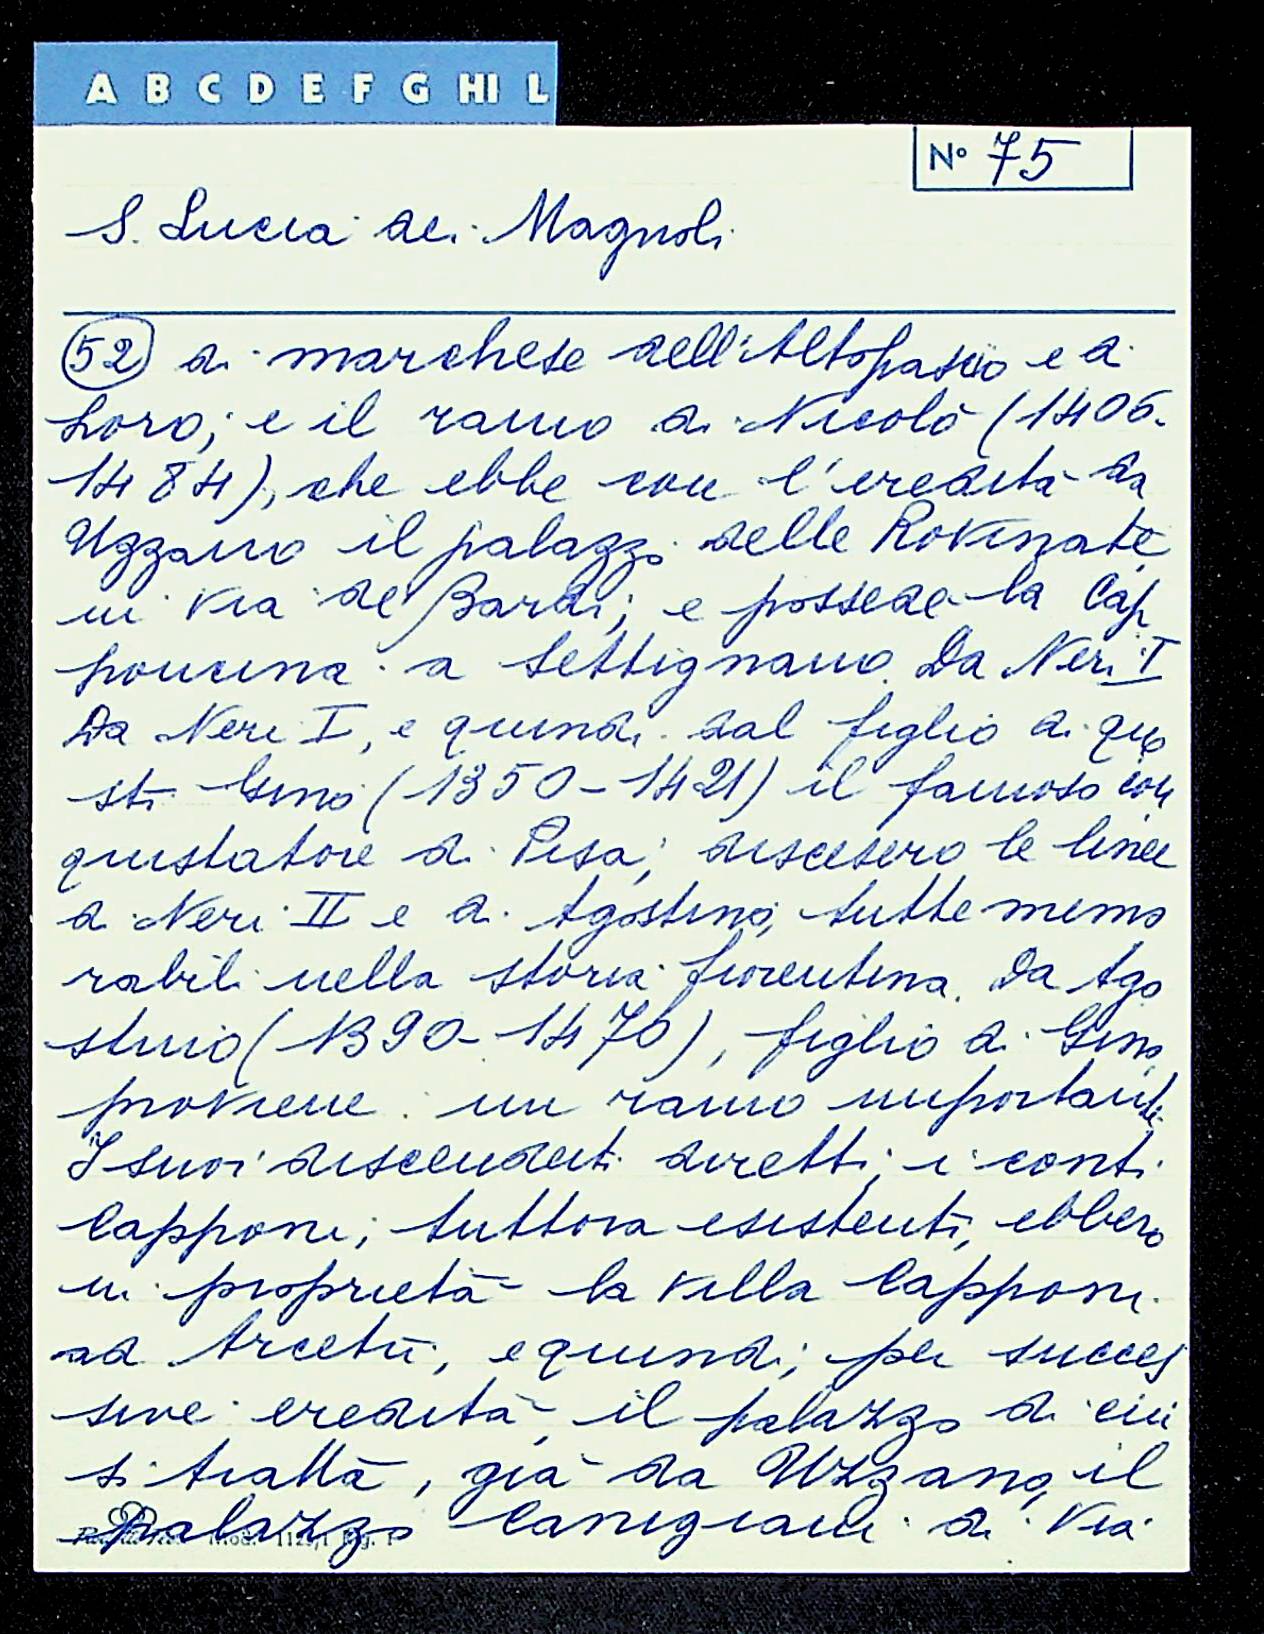 A B C D E F G HI L
N° 75
S. Lucia dei Magnoli
52 di marchese dell'Altopascio e di
Loro; e il ramo di Nicolò (1406-
1484), che ebbe con l'eredità da
Uzzano il palazzo delle Rovinate
in via de' Bardi; e possede la Cap
poncina a Settignano. Da Neri I
Da Neri I, e quindi dal figlio di que
sti Gino (1350-1421) il famoso con
quistatore di Pisa, discesero le linee
di Neri II e di Agostino, tutte memo
rabili nella storia fiorentina. Da Ago
stino (1390-1470), figlio di Gino,
proviene un ramo importante
I suoi discendenti diretti, i conti
Capponi, tuttora esistenti, ebbero
in proprietà la villa Capponi
ad Arcetri, e quindi, per succes
sive eredità, il palazzo di cui
si tratta, già da Uzzano, il
palazzo Canigiani di Via
Mod. 112